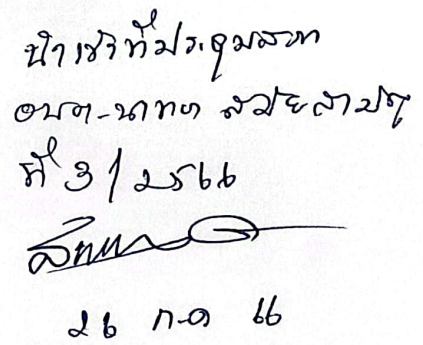 นำเข้าที่ประชุมสภา
อบต. สมัยสามัญ
ที่ 3/2566
26 ก.ค 66